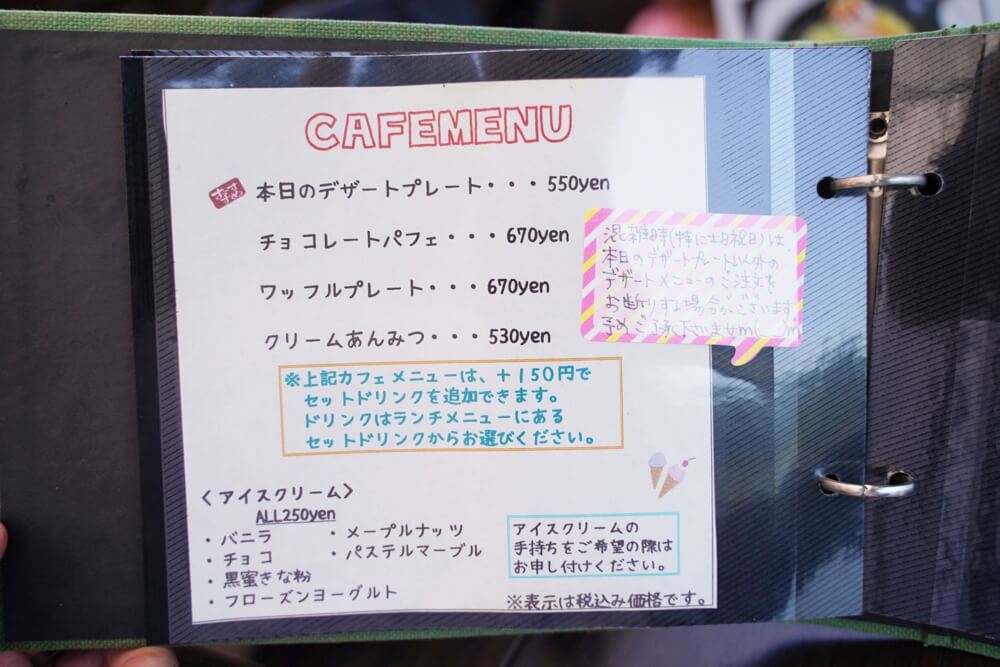 CAFEMENU
おすすめ 本日のデザートプレート・・・550yen
チョコレートパフェ・・・670yen
ワッフルプレート・・・670yen
クリームあんみつ・・・530yen
混雑時(特に土日祝日)は
本日のデザートプレート以外の
デザートメニューのご注文を
お断りする場合がございます
予めご了承下さいませm(__)m
※上記カフェメニューは、＋150円で
セットドリンクを追加できます。
ドリンクはランチメニューにある
セットドリンクからお選びください。
＜アイスクリーム＞
ALL250yen
・バニラ
・チョコ
・黒蜜きな粉
・フローズンヨーグルト
・メープルナッツ
・パステルマーブル
アイスクリームの
手持ちをご希望の際は
お申し付けください。
※表示は税込み価格です。